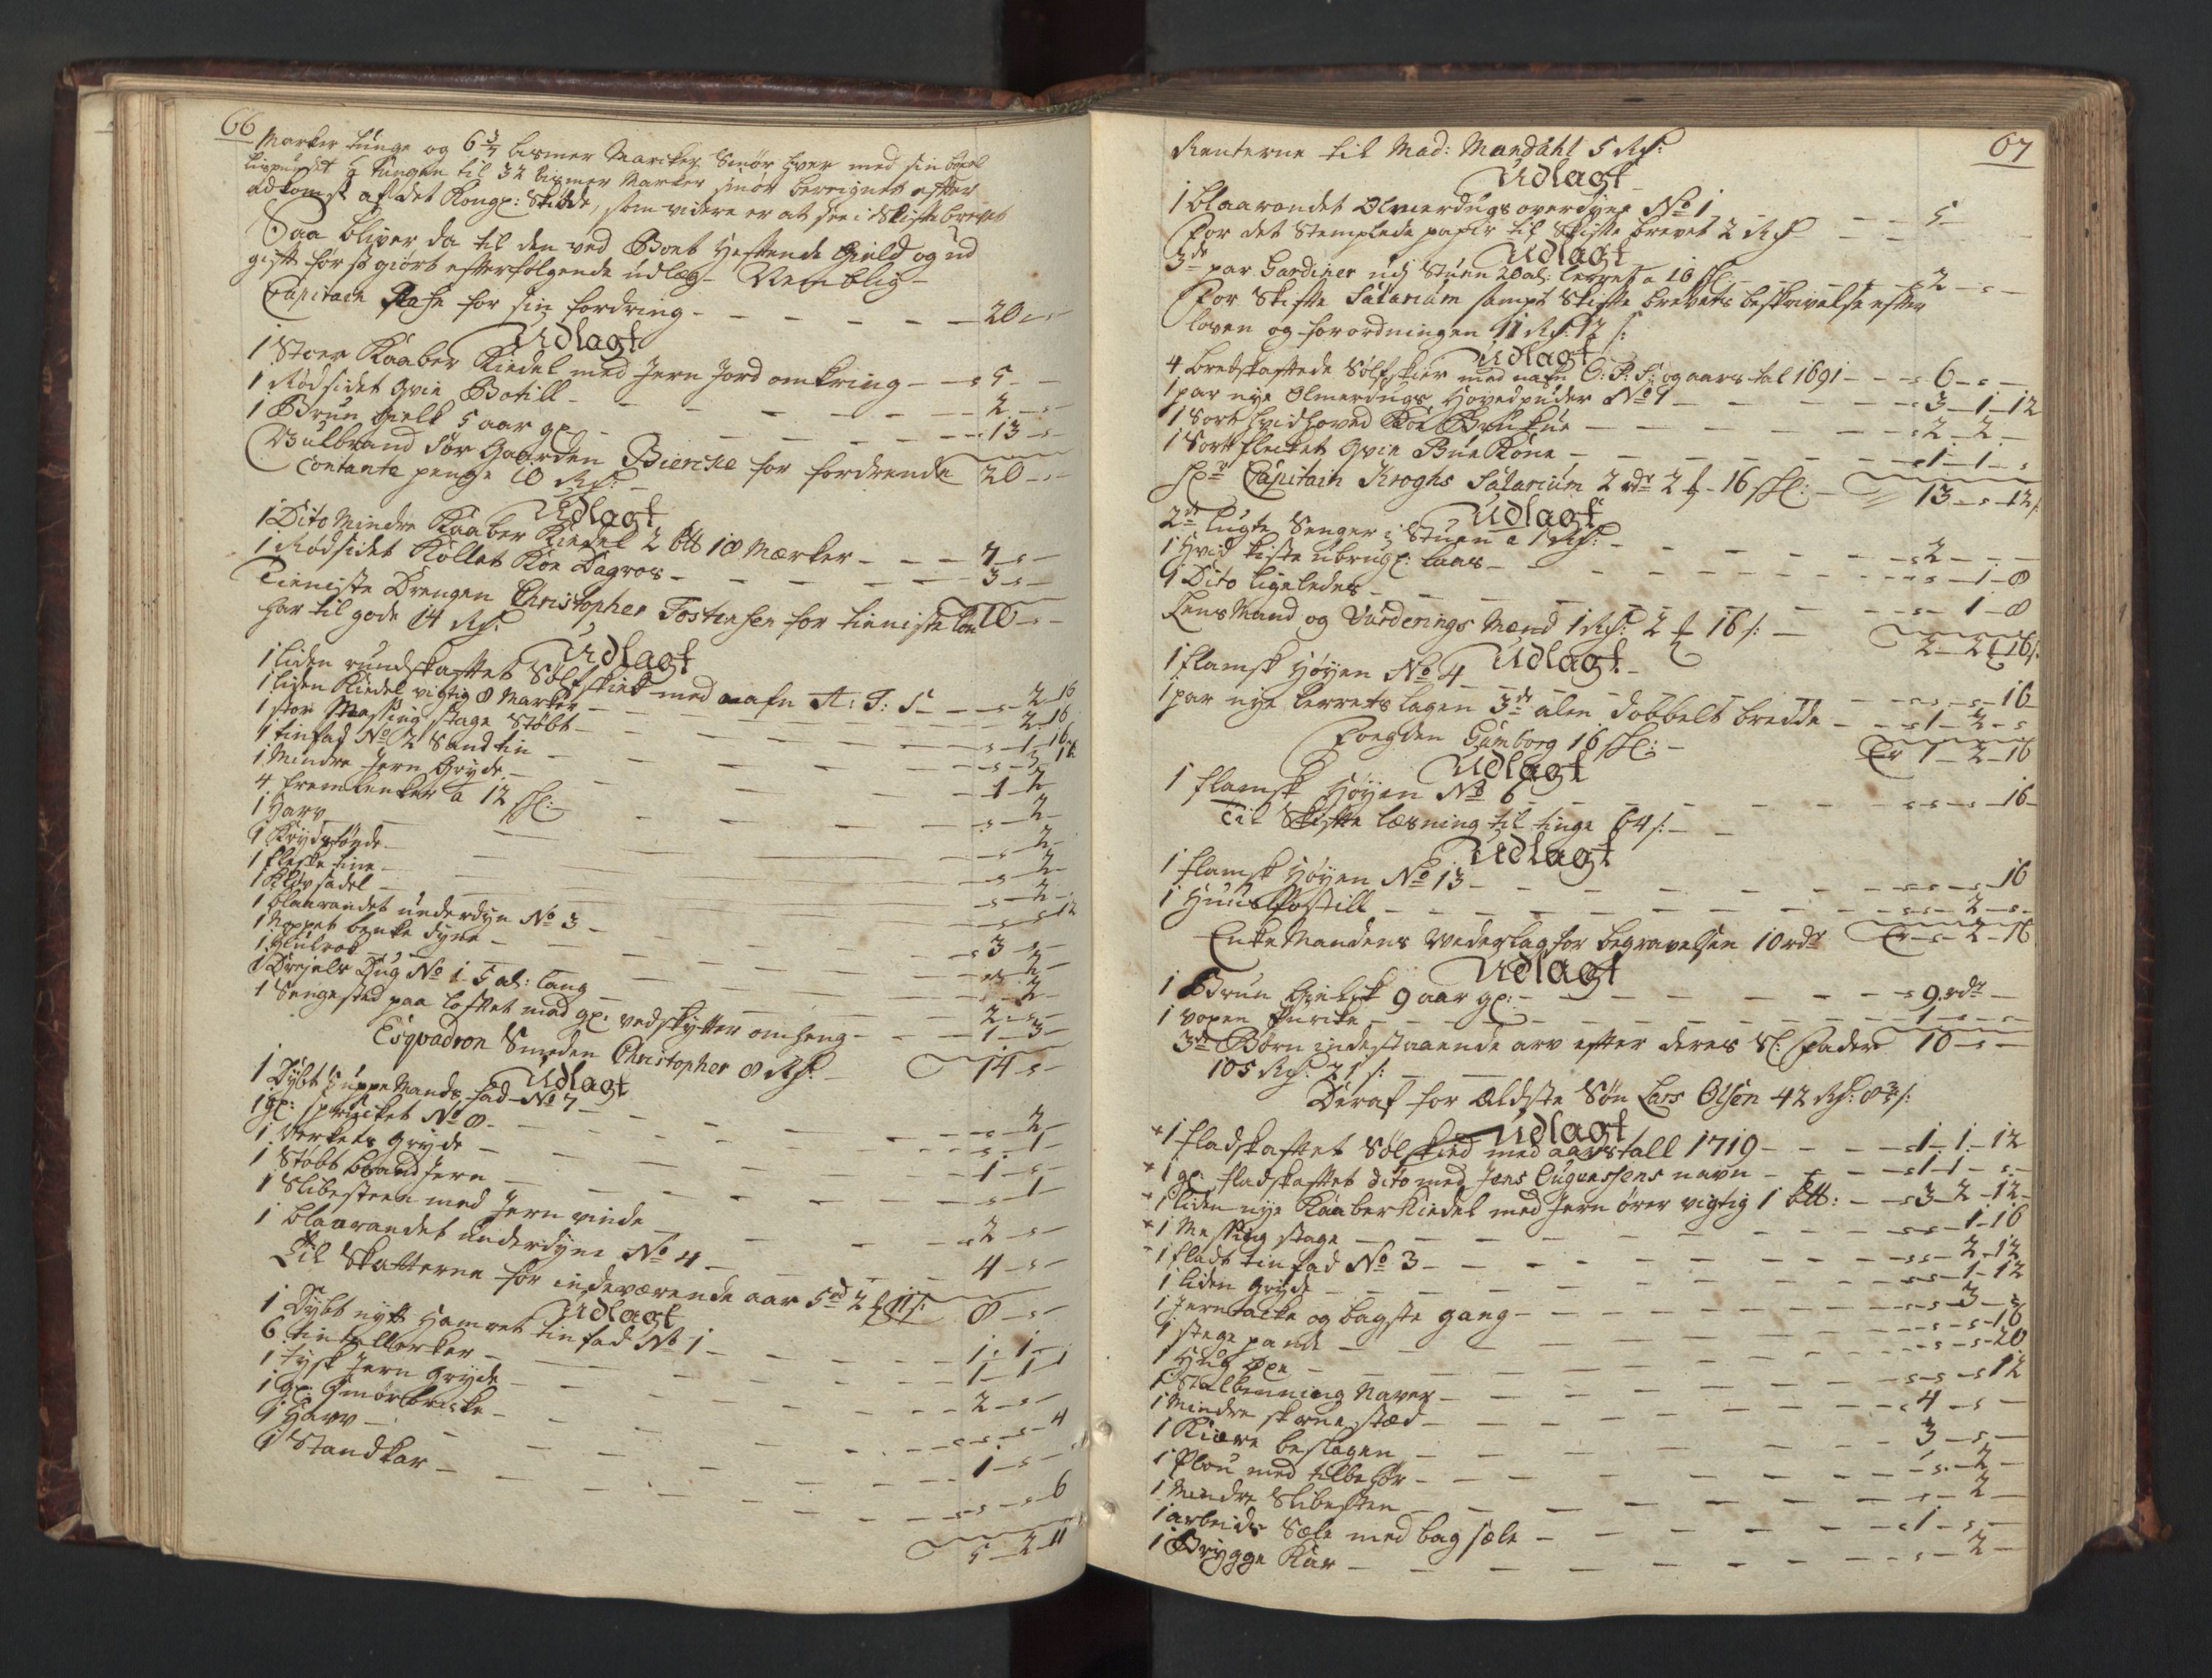 66
Marker tunge og 6 3/4 bismer Marcker Smør hver med sin bøxel
Lispundet tungen til 32 bismer Marker smør bereignet efter
adkomst af det Kongl: Skiøde, som videre er at see i Skiftebrevet
Saa bliver da til den ved Boet heftende Gield og ud
gift forst giort efterfølgende udlæg – Nemblig –
Capitain for sin fordring – 20 – s –
Udlagt
1 Stoer Kaaber Kiedel med Jern Jord omkring – 5 –
1 Rødsidet Qvie Botill – 2 – s –
1 Brun hielk 5 aar gl – 13 – s –
Gulbrand Sør Gaarden Biercke for fordrende 20 – s –
Contante penge 10 Rd:
Udlagt
1 Dito Mindre Kaaber Kiedel 2 b℔ 18 Mærker – 7 – s –
1 Rødsidet Kollet Koe Dagros – 3 – s –
Tieniste Drengen Christopher Tostensen for tieniste løn 10 – s –
har til gode 14 Rd:
Udlagt
1 liden rundskaftet Sølfskied med nafn A: T: S – s – 2 – 16
1 liden Kiedel vigtig 8 Marker – 2 – 16
1 stor Messing stage Støbt – s – 1 – 16
1 tinfad No 2 Sandtin – s – 3 – 12
1 Mindre Jern Gryde – 1 – 2
4 fremlenker a 12 sl: – s – 2 –
1 Harv – s – 2 –
1 Krydstønde – s – 2 –
1 fleske tine – s – 2 –
1 Kløv sadel – s – s – 12
1 blaarandet underdyne No 3 – 3 – s –
1 Noppet benke dyne – s – 2 –
1 Hiulrok – s – 2 –
1 Dreyels Dug No 1 5 al: lang – 2 – s –
1 Sengested paa loftet med gl: vedskytter omheng – 1 – 3 –
14 – s –
Esqvadron Smeden Christopher 8 Rd: –
Udlagt
1 Dybt Suppe Mands fad No 7 – s – 2 –
1 gl: sprucket No 8 – s – 1 –
1 Verkets Gryde – 1 – s –
1 Støbt brand Jern – s – 1 –
1 Slibesteen med Jern vinde – 2 – s –
1 blaarandet underdyne No 4 – 4 – s –
Til Skatterne for indeværende aar 5 rd 2 ₰ 11 s: 8 – s –
Udlagt
1 Dybt nytt Hamret tinfad No 1 – 1 – 1 –
6 tin tallerker – 1 – 1 – 1
1 tysk Jern Gryde – 2 – s –
1 gl: Smørbricke – s – s – 4
1 Harv – 1 – s –
1 Standkar – s – s – 6
5 – 2 – 11
67
Renterne til Mad: Mandahl 5 Rd:
Udlagt
1 blaarandet Olmerdugs overdyne No 1 – 5 –
For det Stemplede papir til Skifte brevet 2 Rd
Udlagt
3de par Gardiner udj Stuen 20 al: lerret a 10 sl: – 2 – s –
For Skifte Salarium sampt Skifte brevets beskrivelse efter
loven og forordningen 11 Rd: 12 s:
Udlagt
4 bredskaftede Sølfskier med nafn O: P: S: og aars tal 1691 – 6 – s –
1 par nye Olmerdugs Hovedpuder No 1 – 3 – 1 – 12
1 Sort hvidhoved Koe – 2 – 2 –
1 Sort flecket Qvie Bue Kone – 1 – 1 – s
Hr Capitain Kroghs Salarium 2 rdr 2 ₰ 16 sl: – 13 – s – 12 s
Udlagt
2de lugte Senger i Stuen a 1 Rd: – 2 – –
1 Hvid kiste ubrugl: laas – s – 1 – 8
1 Dito ligeledes – s – 1 – 8
Lens Mand og Vurderings Mend 1 Rd: 2 ₰ 16 s: – 2 – 2 – 16 s:
Udlagt
1 flamsk Høyen No 4 – s – s – 16
1 par nye lerrets lagen 3de alen dobbelt bredde – 1 – 2 – s
Foegden Gamborg 16 sl: – Er 1 – 2 – 16
Udlagt
1 flamsk Høyen No 6 – s – s – 16 –
Til Skifte læsning til tinge 64 s: –
Udlagt
1 flamsk Høyen No 13 – s – s – 16
1 Huus Postill – s – 2 – s –
Enke Mandens Vederlag for begravelsen 10 rdr Er – s – 2 – 16
Udlagt
1 Brun hielck 9 aar gl: – 9 rdr –
1 vopen – 1 – s –
3de Børn indestaaende arv efter deres Sl: Fader 10 – s –
105 Rd: 21 s: –
Deraf for Ældste Søn Lars Olsen 42 Rd: 8 3/5 s:
Udlagt
× 1 fladskaftet Sølfskied med aarstall 1719 – 1 – 1 – 12
× 1 gl: fladskaftet dito med Jens navn – 1 – 1 – s –
× 1 liden nye Kaaber Kiedel med Jern ører vigtig 1 b℔: – 3 – 2 – 12 –
× 1 Messing stage – s – 1 – 16
1 fladt tinfad No 3 – s – 2 – 12
1 liden Gryde – s – 1 – 12
1 Jerntacke og bagste gang – s – 3 – s
1 stege pande – s – s – 16
1 Hug Øxe – s – s – 20
1 Naver – s – s – 12
1 Mindre stæd – 4 – s –
1 Kiærre beslagen – 3 – s –
1 Plou med tilbehør – s – 2 –
1 Mindre Slibesteen – s – 2 –
1 arbeids Sæle med bag sæle – 1 – s –
1 Brygge Kar – s – 2 –